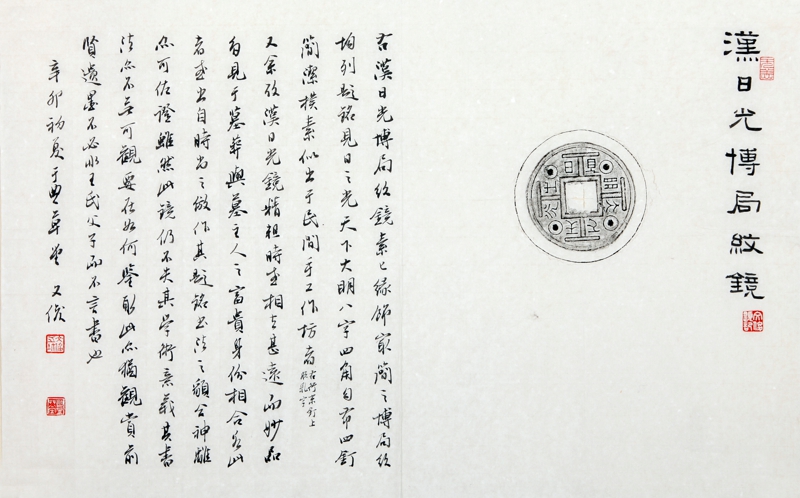 漢日光博局紋鏡
右漢日光博局紋鏡素緣飾最簡之博局紋
均列題銘見日之光天下大明八字四角自布四釘
簡潔樸素似出于民間手工作坊者
右行末釘上
脫乳字
又余攷漢日光鏡精粗時或相去甚遠而妙品
見于墓葬與墓主人之富貴身份相合若此
者或出自時尚之倣作其題銘書法之神離
亦可佐證雖然此鏡仍不失其學術意義其書
法亦不無可觀要在如何鑒取此亦猶觀賞前
賢遺墨不必王氏父子而不言書也
辛卯初夏于草堂